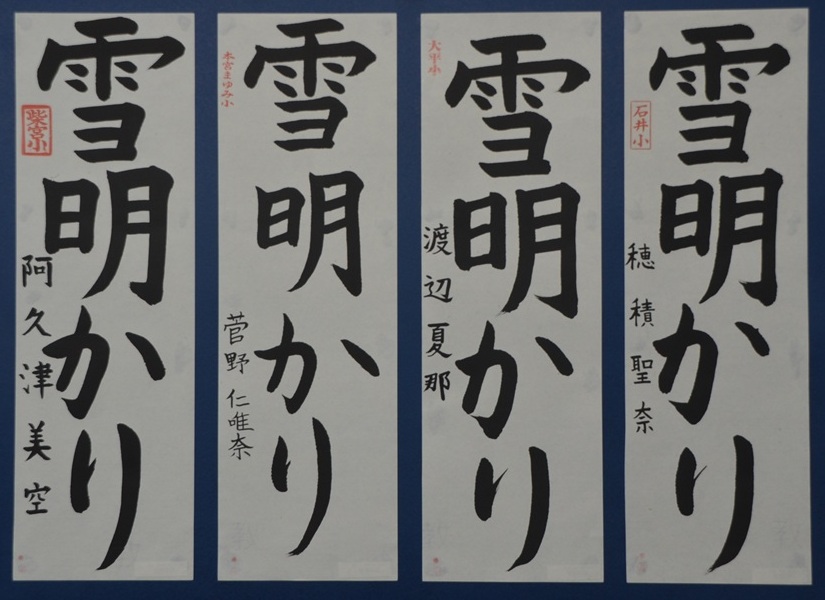 雪明かり
柴宮小
阿久津美空
雪明かり
本宮まゆみ小
菅野仁唯奈
雪明かり
大平小
渡辺夏那
雪明かり
石井小
穂積聖奈